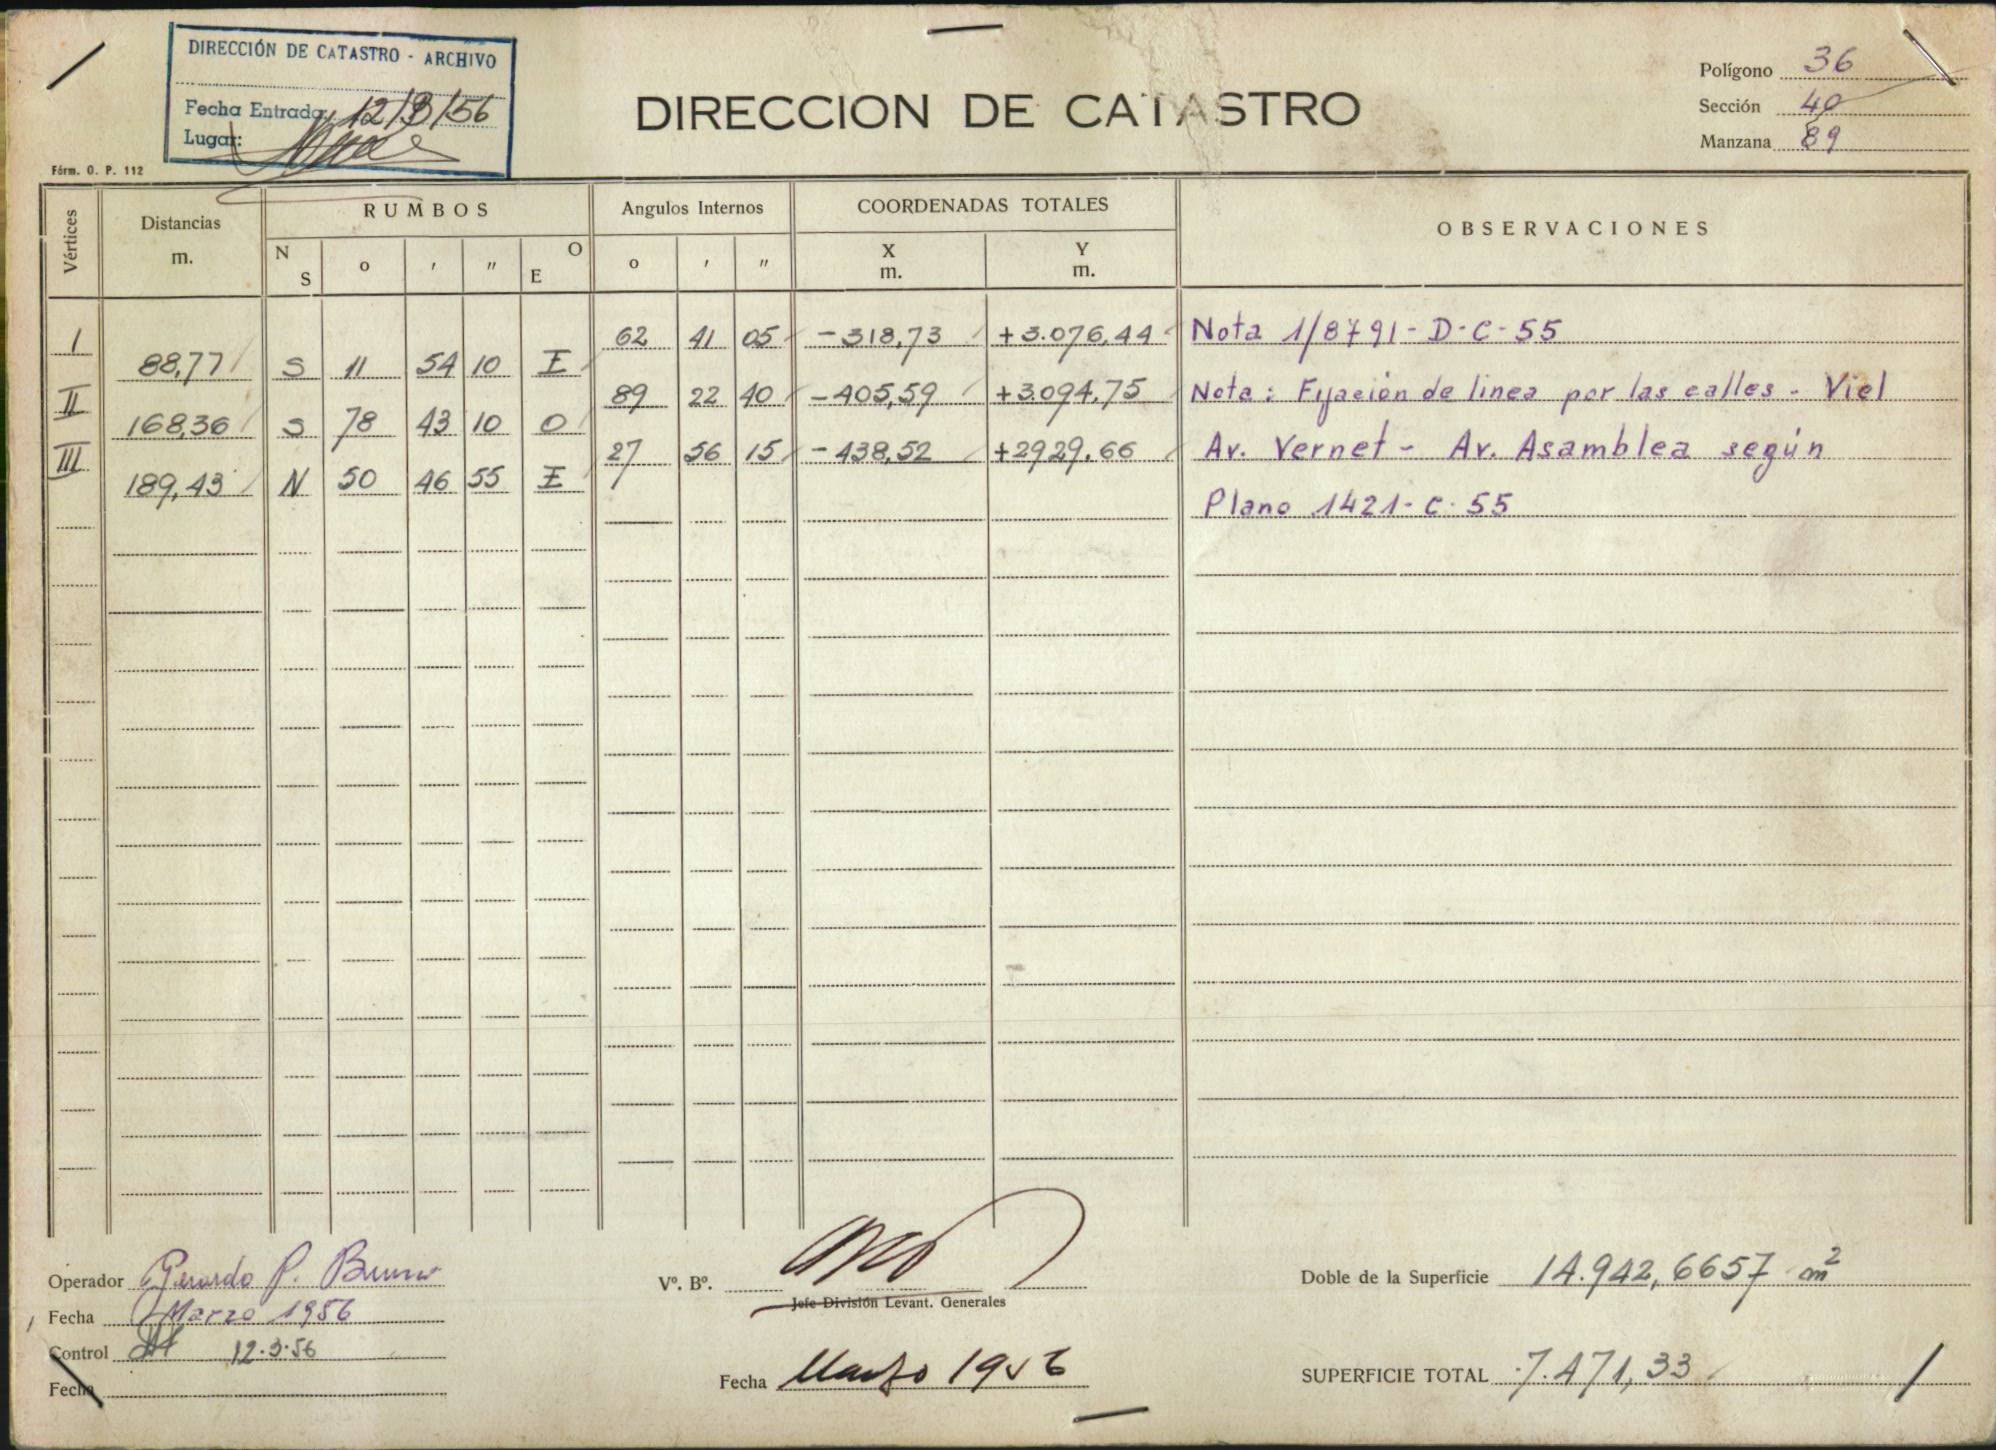 DIRECCIÓN DE CATASTRO - ARCHIVO
Fecha Entrada: 12/3/56
Lugar:
Fórm. O. P. 112
DIRECCION DE CATASTRO
Polígono 36
Sección 40
Manzana 89
Vértices
Distancias
m.
RUMBOS
N
S
o
'
"
O
E
Angulos Internos
o
'
"
COORDENADAS TOTALES
X
m.
Y
m.
OBSERVACIONES
I 62 41 05 -318,73 +3.076,44 Nota 1/8791-D-C-55
88,77 S 11 54 10 E
II 89 22 40 -405,59 +3.094,75 Nota: Fijación de linea por las calles - Viel
168,36 S 78 43 10 O
III 27 56 15 -438,52 +2929,66 Av. Vernet - Av. Asamblea según
189,43 N 50 46 55 E
Plano 1421-C-55
Operador Gerardo P. Bruno
Fecha Marzo 1956
Control 12-3-56
Fecha
Vº. Bº.
Jefe División Levant. Generales
Fecha Marzo 1956
Doble de la Superficie 14.942,6657 m2
SUPERFICIE TOTAL 7.471,33